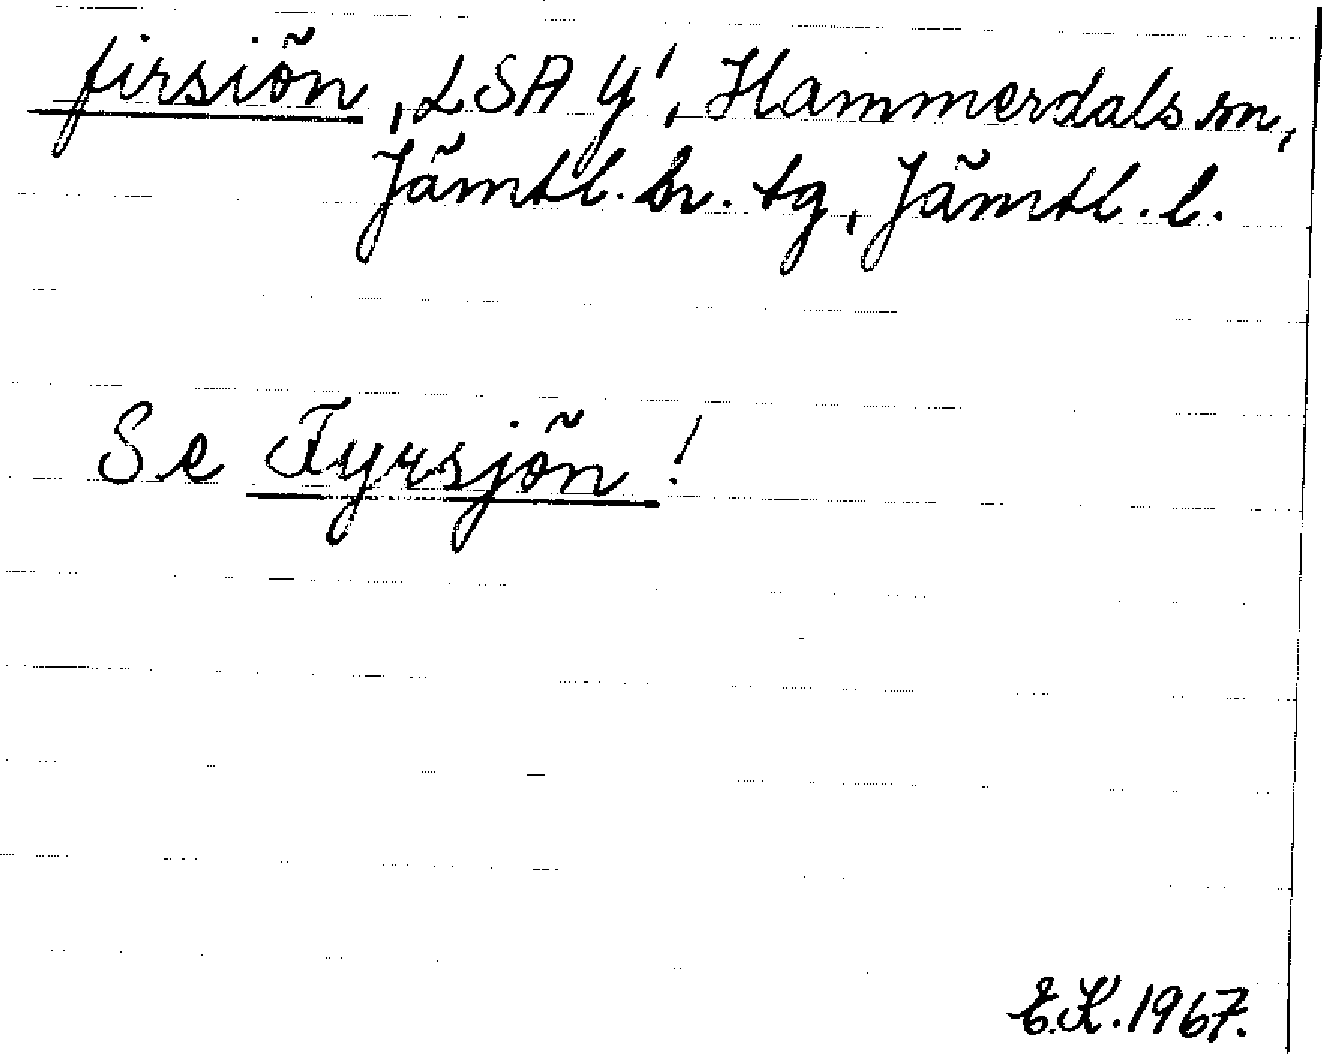 firsiön, LSA y', Hammerdals sn,
Jämtl. br. tg, Jämtl. l.
Se Fyrsjön!
E.K. 1967.